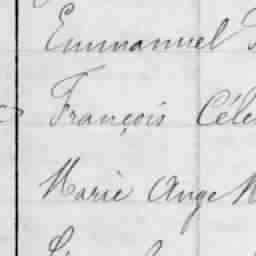 Emmanuel
François Céle
Marie Ange M